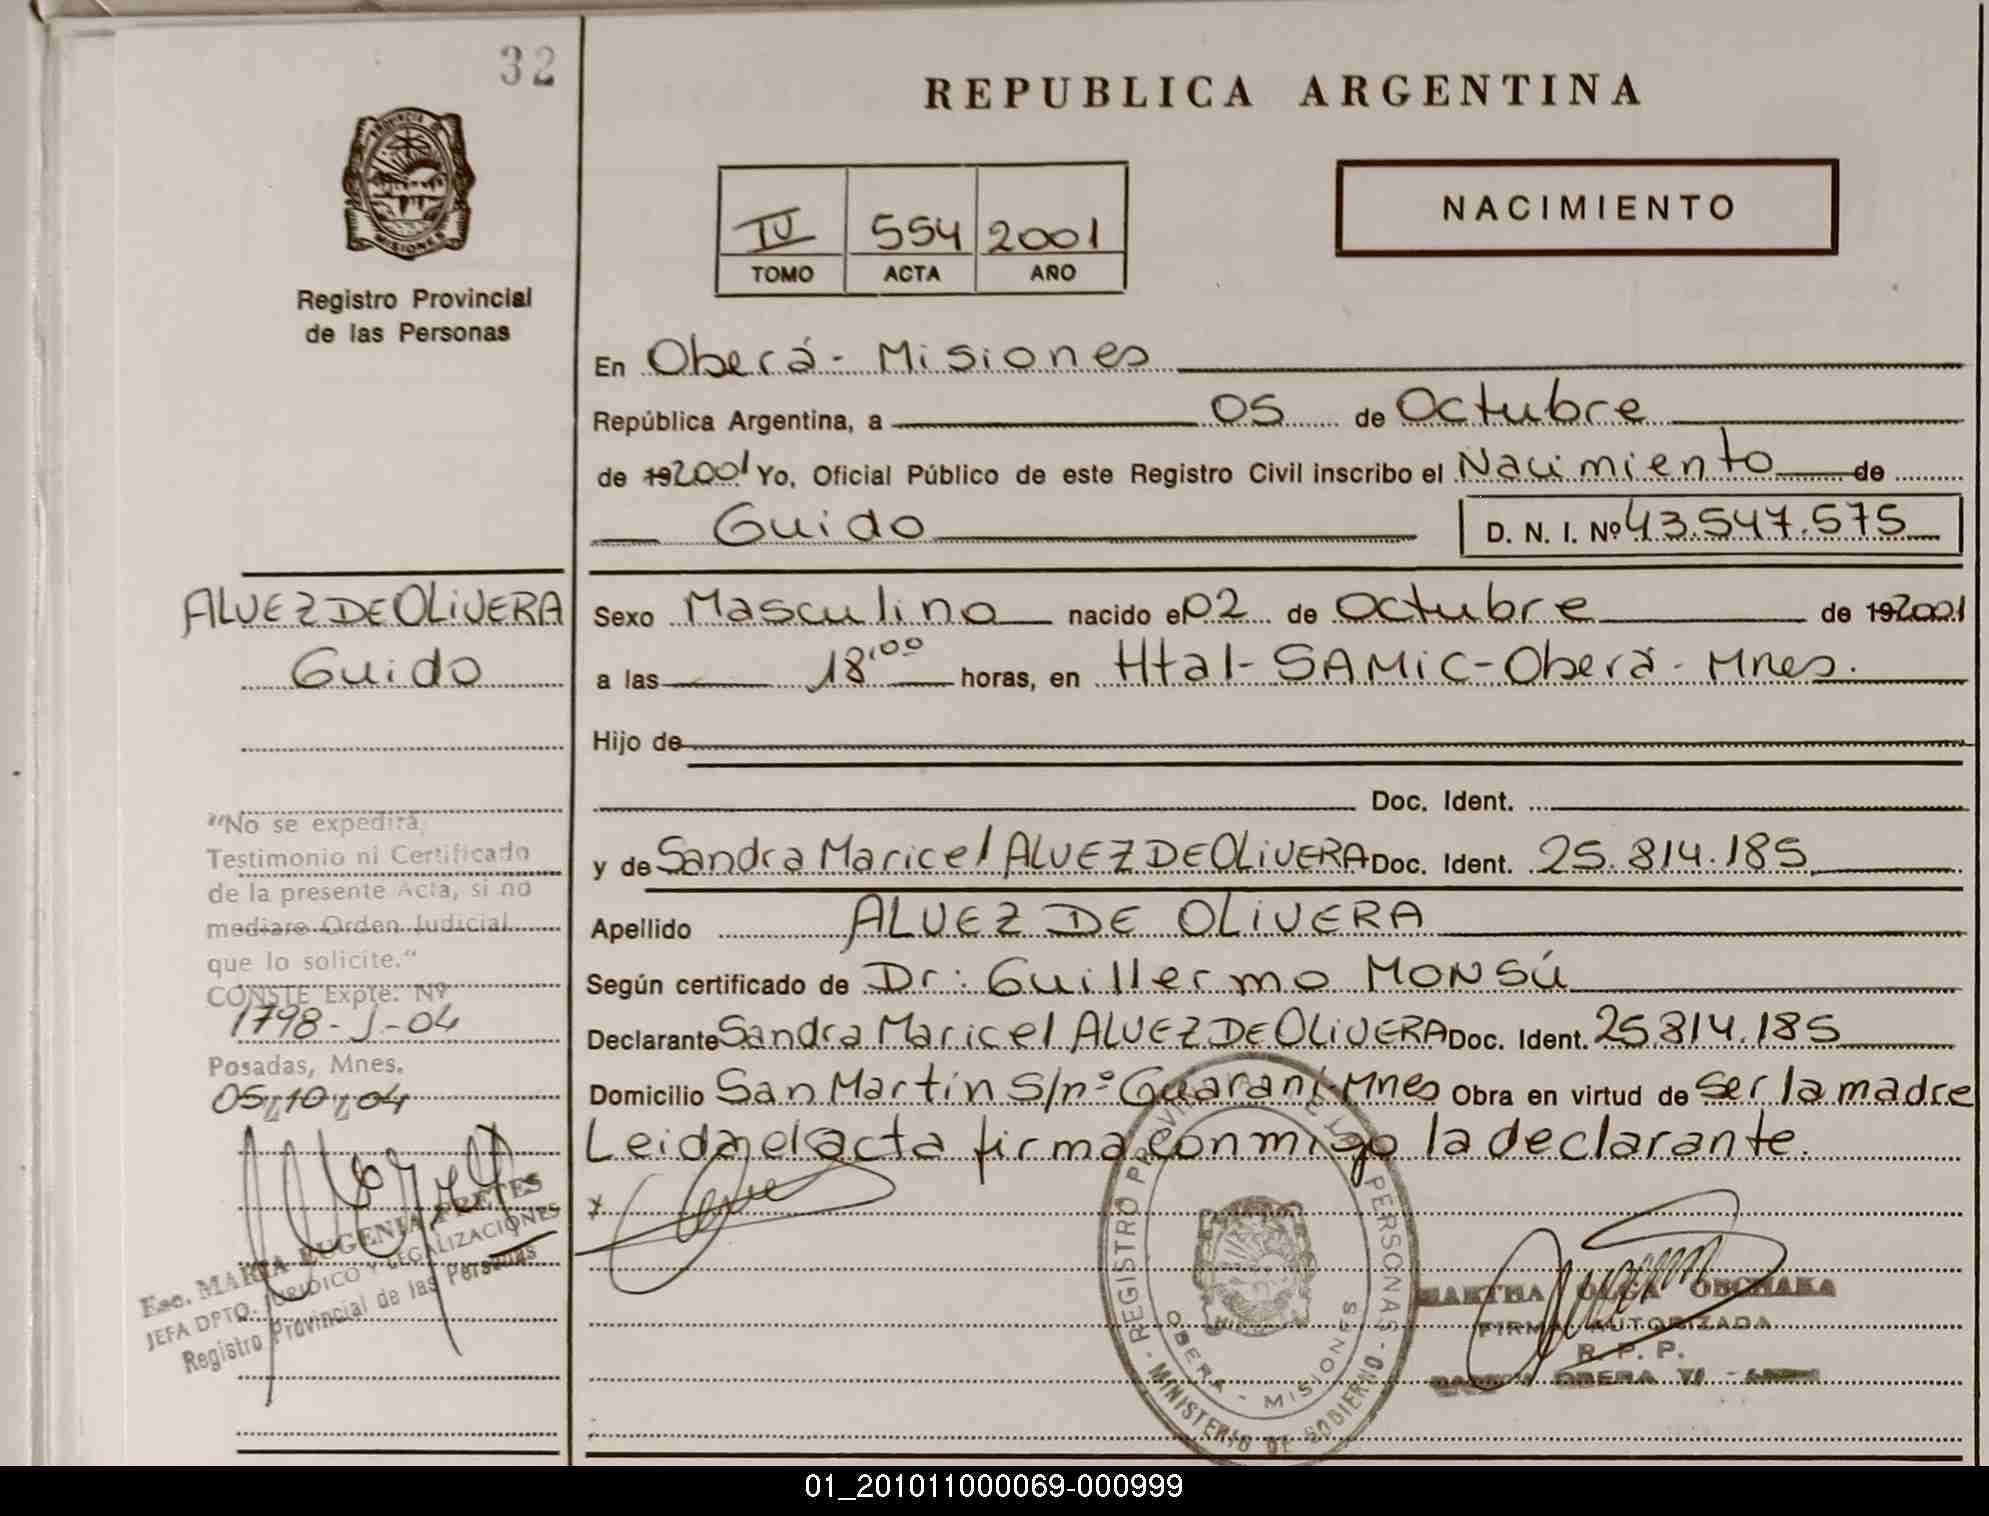 32
REPUBLICA ARGENTINA
PROVINCIA DE
MISIONES
Registro Provincial
de las Personas
IV 554 2001
TOMO ACTA AÑO
NACIMIENTO
En Oberá - Misiones
República Argentina, a 05 de Octubre
de 192001 Yo, Oficial Público de este Registro Civil inscribo el Nacimiento de
Guido D. N. I. Nº 43.547.575
ALVEZ DE OLIVERA
Guido
Sexo Masculino nacido el 02 de Octubre de 192001
a las 18:00 horas, en Htal - SAMIC - Oberá - Mnes.
Hijo de
Doc. Ident.
y de Sandra Maricel ALVEZ DE OLIVERA Doc. Ident. 25.814.185
Apellido ALVEZ DE OLIVERA
Según certificado de Dr: Guillermo MONSÚ
Declarante Sandra Maricel ALVEZ DE OLIVERA Doc. Ident. 25.814.185
Domicilio San Martín S/nº Guaraní-Mnes Obra en virtud de ser la madre
Leida el acta firma conmigo la declarante.
x
"No se expedirá,
Testimonio ni Certificado
de la presente Acta, si no
mediare Orden Judicial
que lo solicite."
CONSTE Expte. Nº
1798-J-04
Posadas, Mnes.
05/10/04
Esc. MARIA EUGENIA PRETES
JEFA DPTO. JURIDICO Y LEGALIZACIONES
Registro Provincial de las Personas
REGISTRO PROVINCIAL DE LAS PERSONAS - MINISTERIO DE GOBIERNO -
OBERA - MISIONES
MARTHA OLGA
FIRMA AUTORIZADA
R. P. P.
OBERA VI
01_201011000069-000999